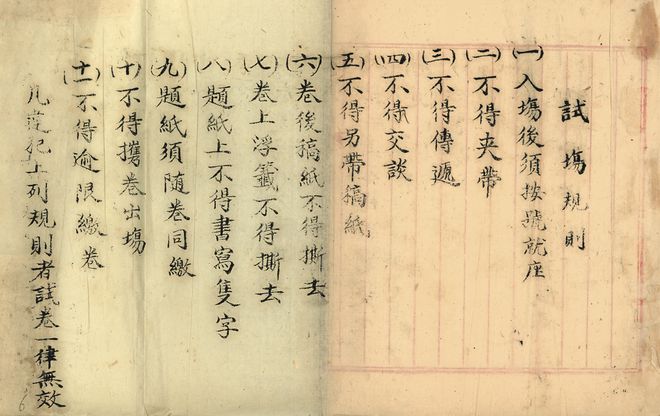 試場規則
(一)入場後須按號就座
(二)不得夾帶
(三)不得傳遞
(四)不得交談
(五)不得另帶稿紙
(六)卷後稿紙不得撕去
(七)卷上浮籤不得撕去
(八)題紙上不得書寫隻字
(九)題紙須隨卷同繳
(十)不得攜卷出場
(十一)不得逾限繳卷
凡違犯上列規則者試卷一律無效